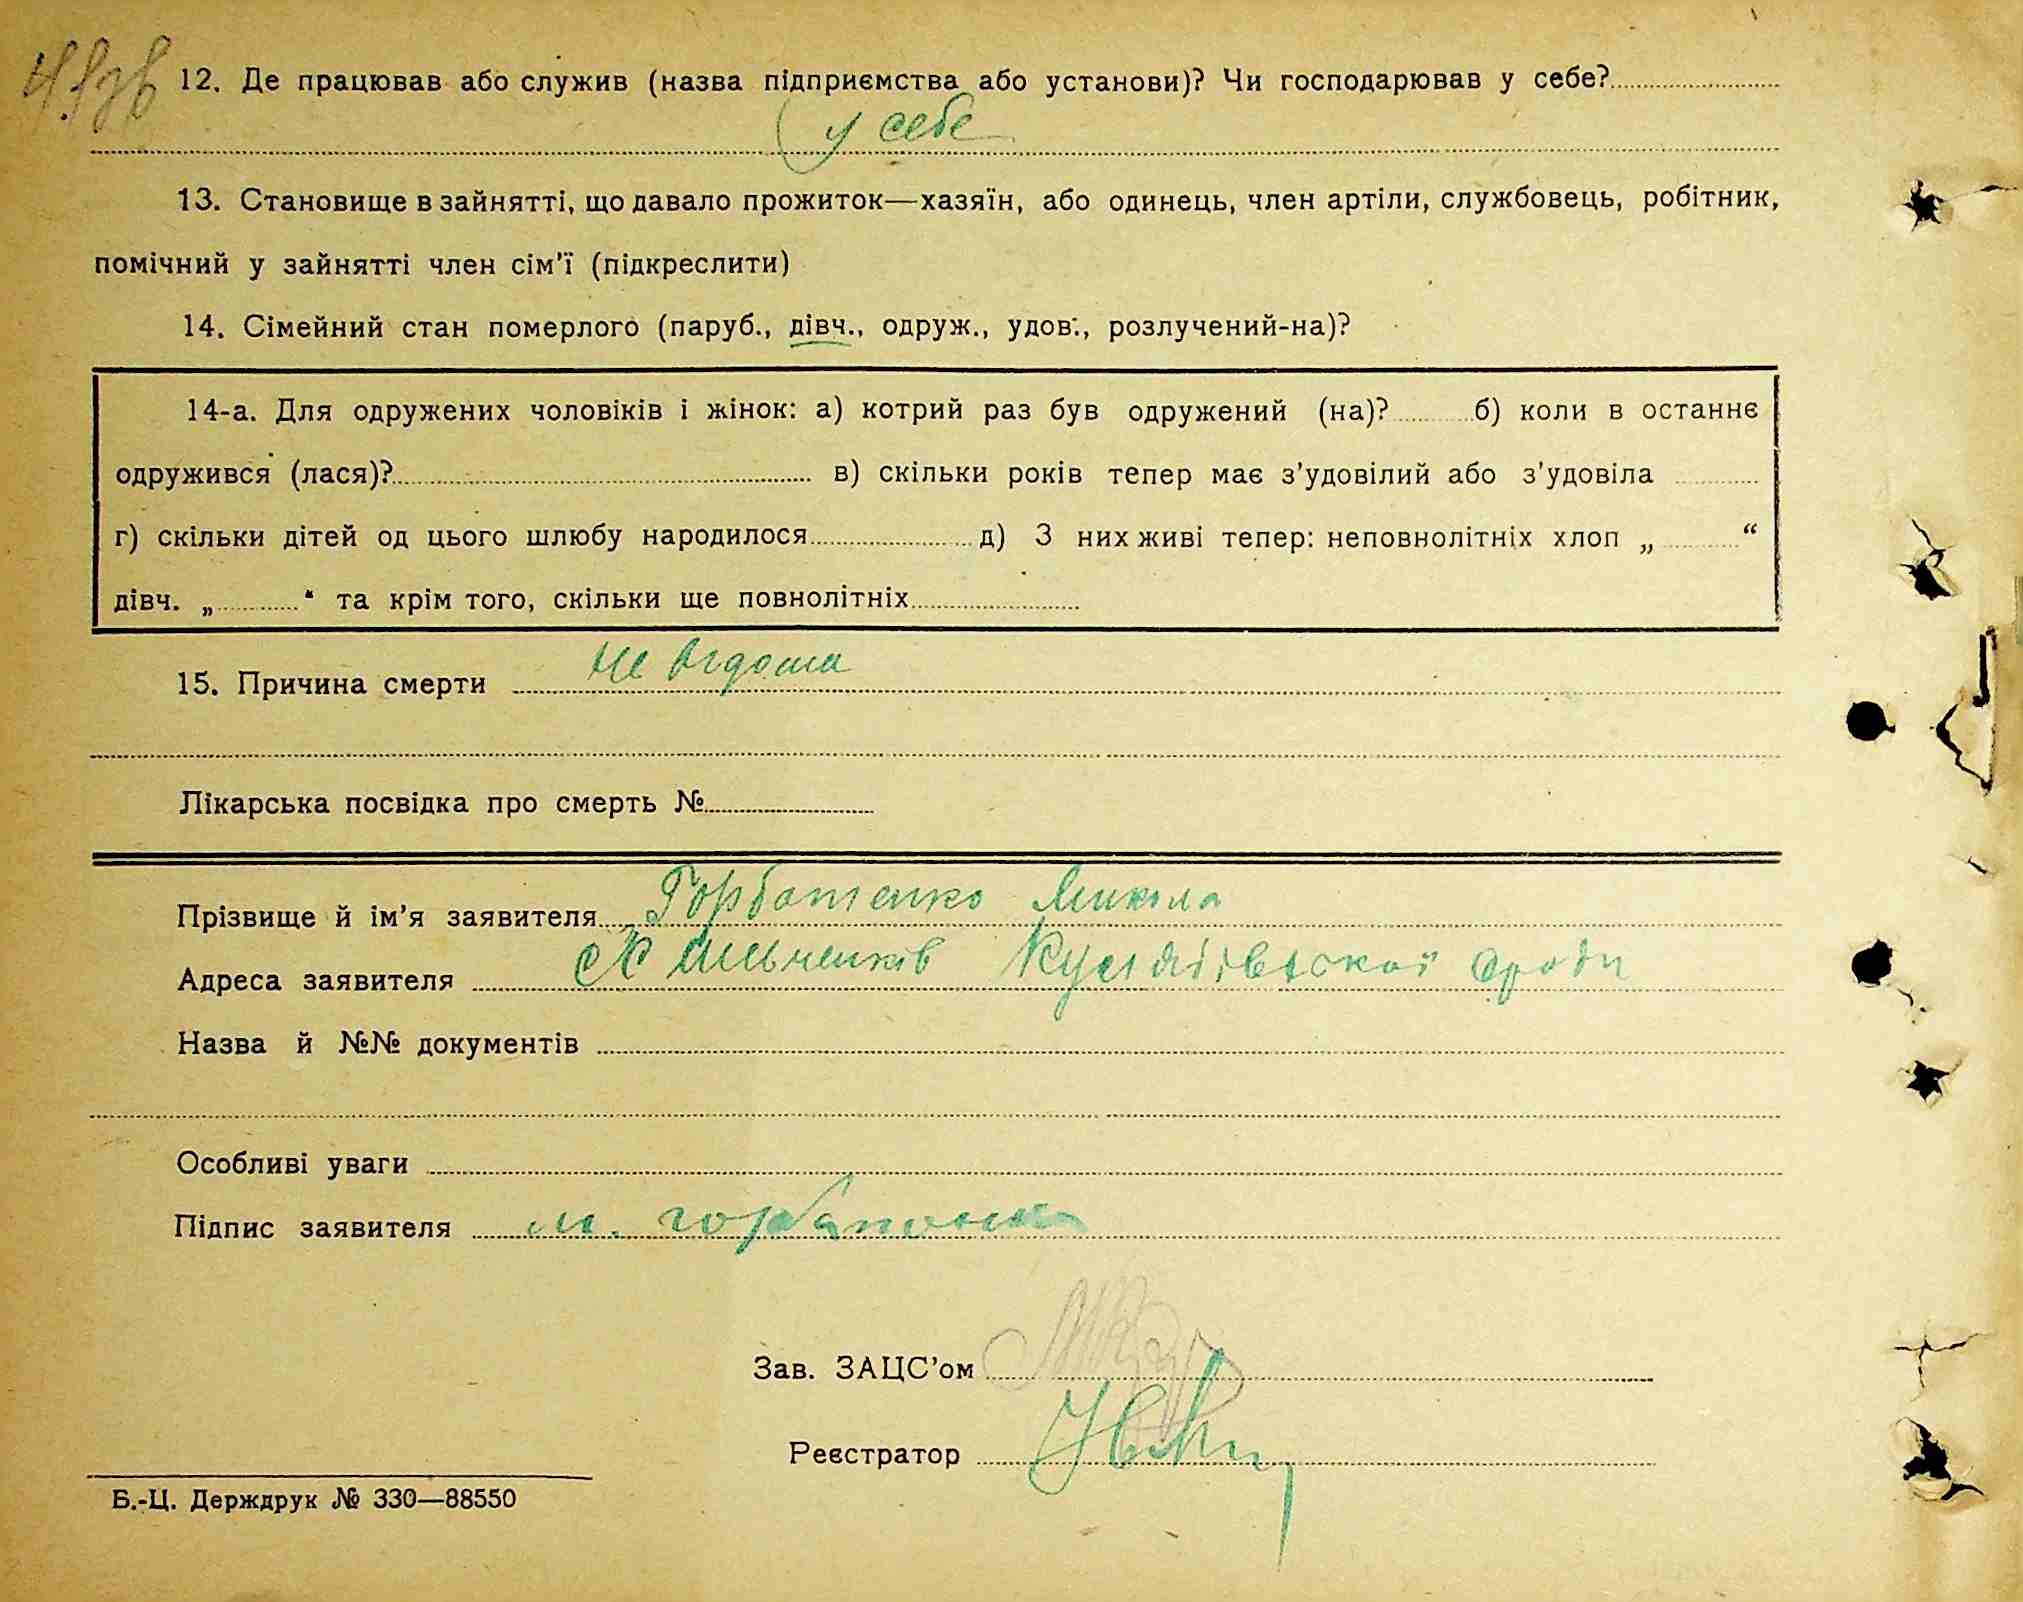 12. Де працював або служив (назва підприємства або установи)? Чи господарював у себе?
у себе
13. Становище в зайнятті, що давало прожиток—хазяїн, або одинець, член артіли, службовець, робітник,
помічний у зайнятті член сім'ї (підкреслити)
14. Сімейний стан померлого (паруб., дівч., одруж., удов., розлучений-на)?
14-а. Для одружених чоловіків і жінок: а) котрий раз був одружений (на)? б) коли в останнє
одружився (лася)? в) скільки років тепер має з'удовілий або з'удовіла
г) скільки дітей од цього шлюбу народилося д) З них живі тепер: неповнолітніх хлоп „ “
дівч. „ “ та крім того, скільки ще повнолітніх
15. Причина смерти не відома
Лікарська посвідка про смерть №
Прізвище й ім'я заявителя Горбатенко Микола
Адреса заявителя
Назва й №№ документів
Особливі уваги
Підпис заявителя м. горбатенко
Зав. ЗАЦС'ом
Реєстратор
Б.-Ц. Держдрук № 330—88550